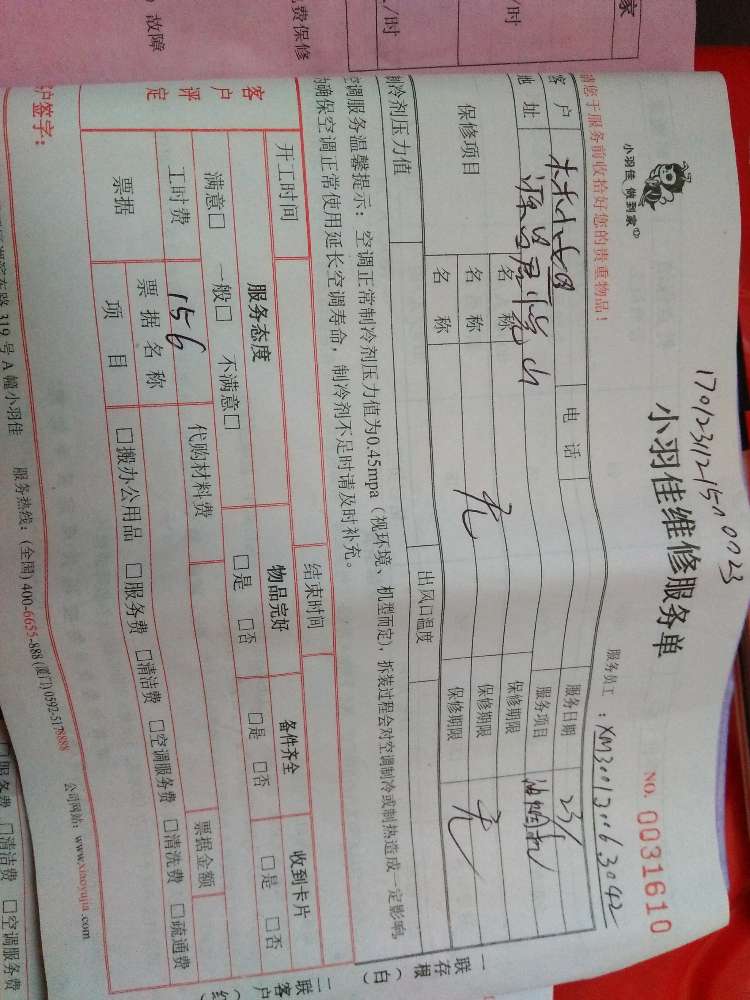 小羽佳 做到家
小羽佳维修服务单
NO. 0031610
服务员工：XM300130063042
请您于服务前收拾好您的贵重物品！
客户
电话
服务日期
23/1
地址
服务项目
油烟机
保修项目
名称
保修期限
名称
无
保修期限
无
名称
保修期限
制冷剂压力值
出风口温度
空调服务温馨提示：空调正常制冷剂压力值为0.45mpa（视环境、机型而定），拆装过程会对空调制冷或制热造成一定影响，
确保空调正常使用延长空调寿命，制冷剂不足时请及时补充。
开工时间
结束时间
客户评定
服务态度
物品完好
备件齐全
收到卡片
满意□ 一般□ 不满意□
□是 □否
□是 □否
□是 □否
工时费
156
代购材料费
票据金额
票据
票据名称
项目
□搬办公用品 □服务费 □清洁费 □空调服务费 □清洗费 □疏通费
户签字：
路 319 号 A 幢小羽佳
服务热线：(全国) 400-6655-888 (厦门) 0592-5178888
公司网站：www.xiaoyujia.com
一联存根（白）
二联客户
费保修
故障
/时
/时
家
服务费 □清洁费 □空调服务费